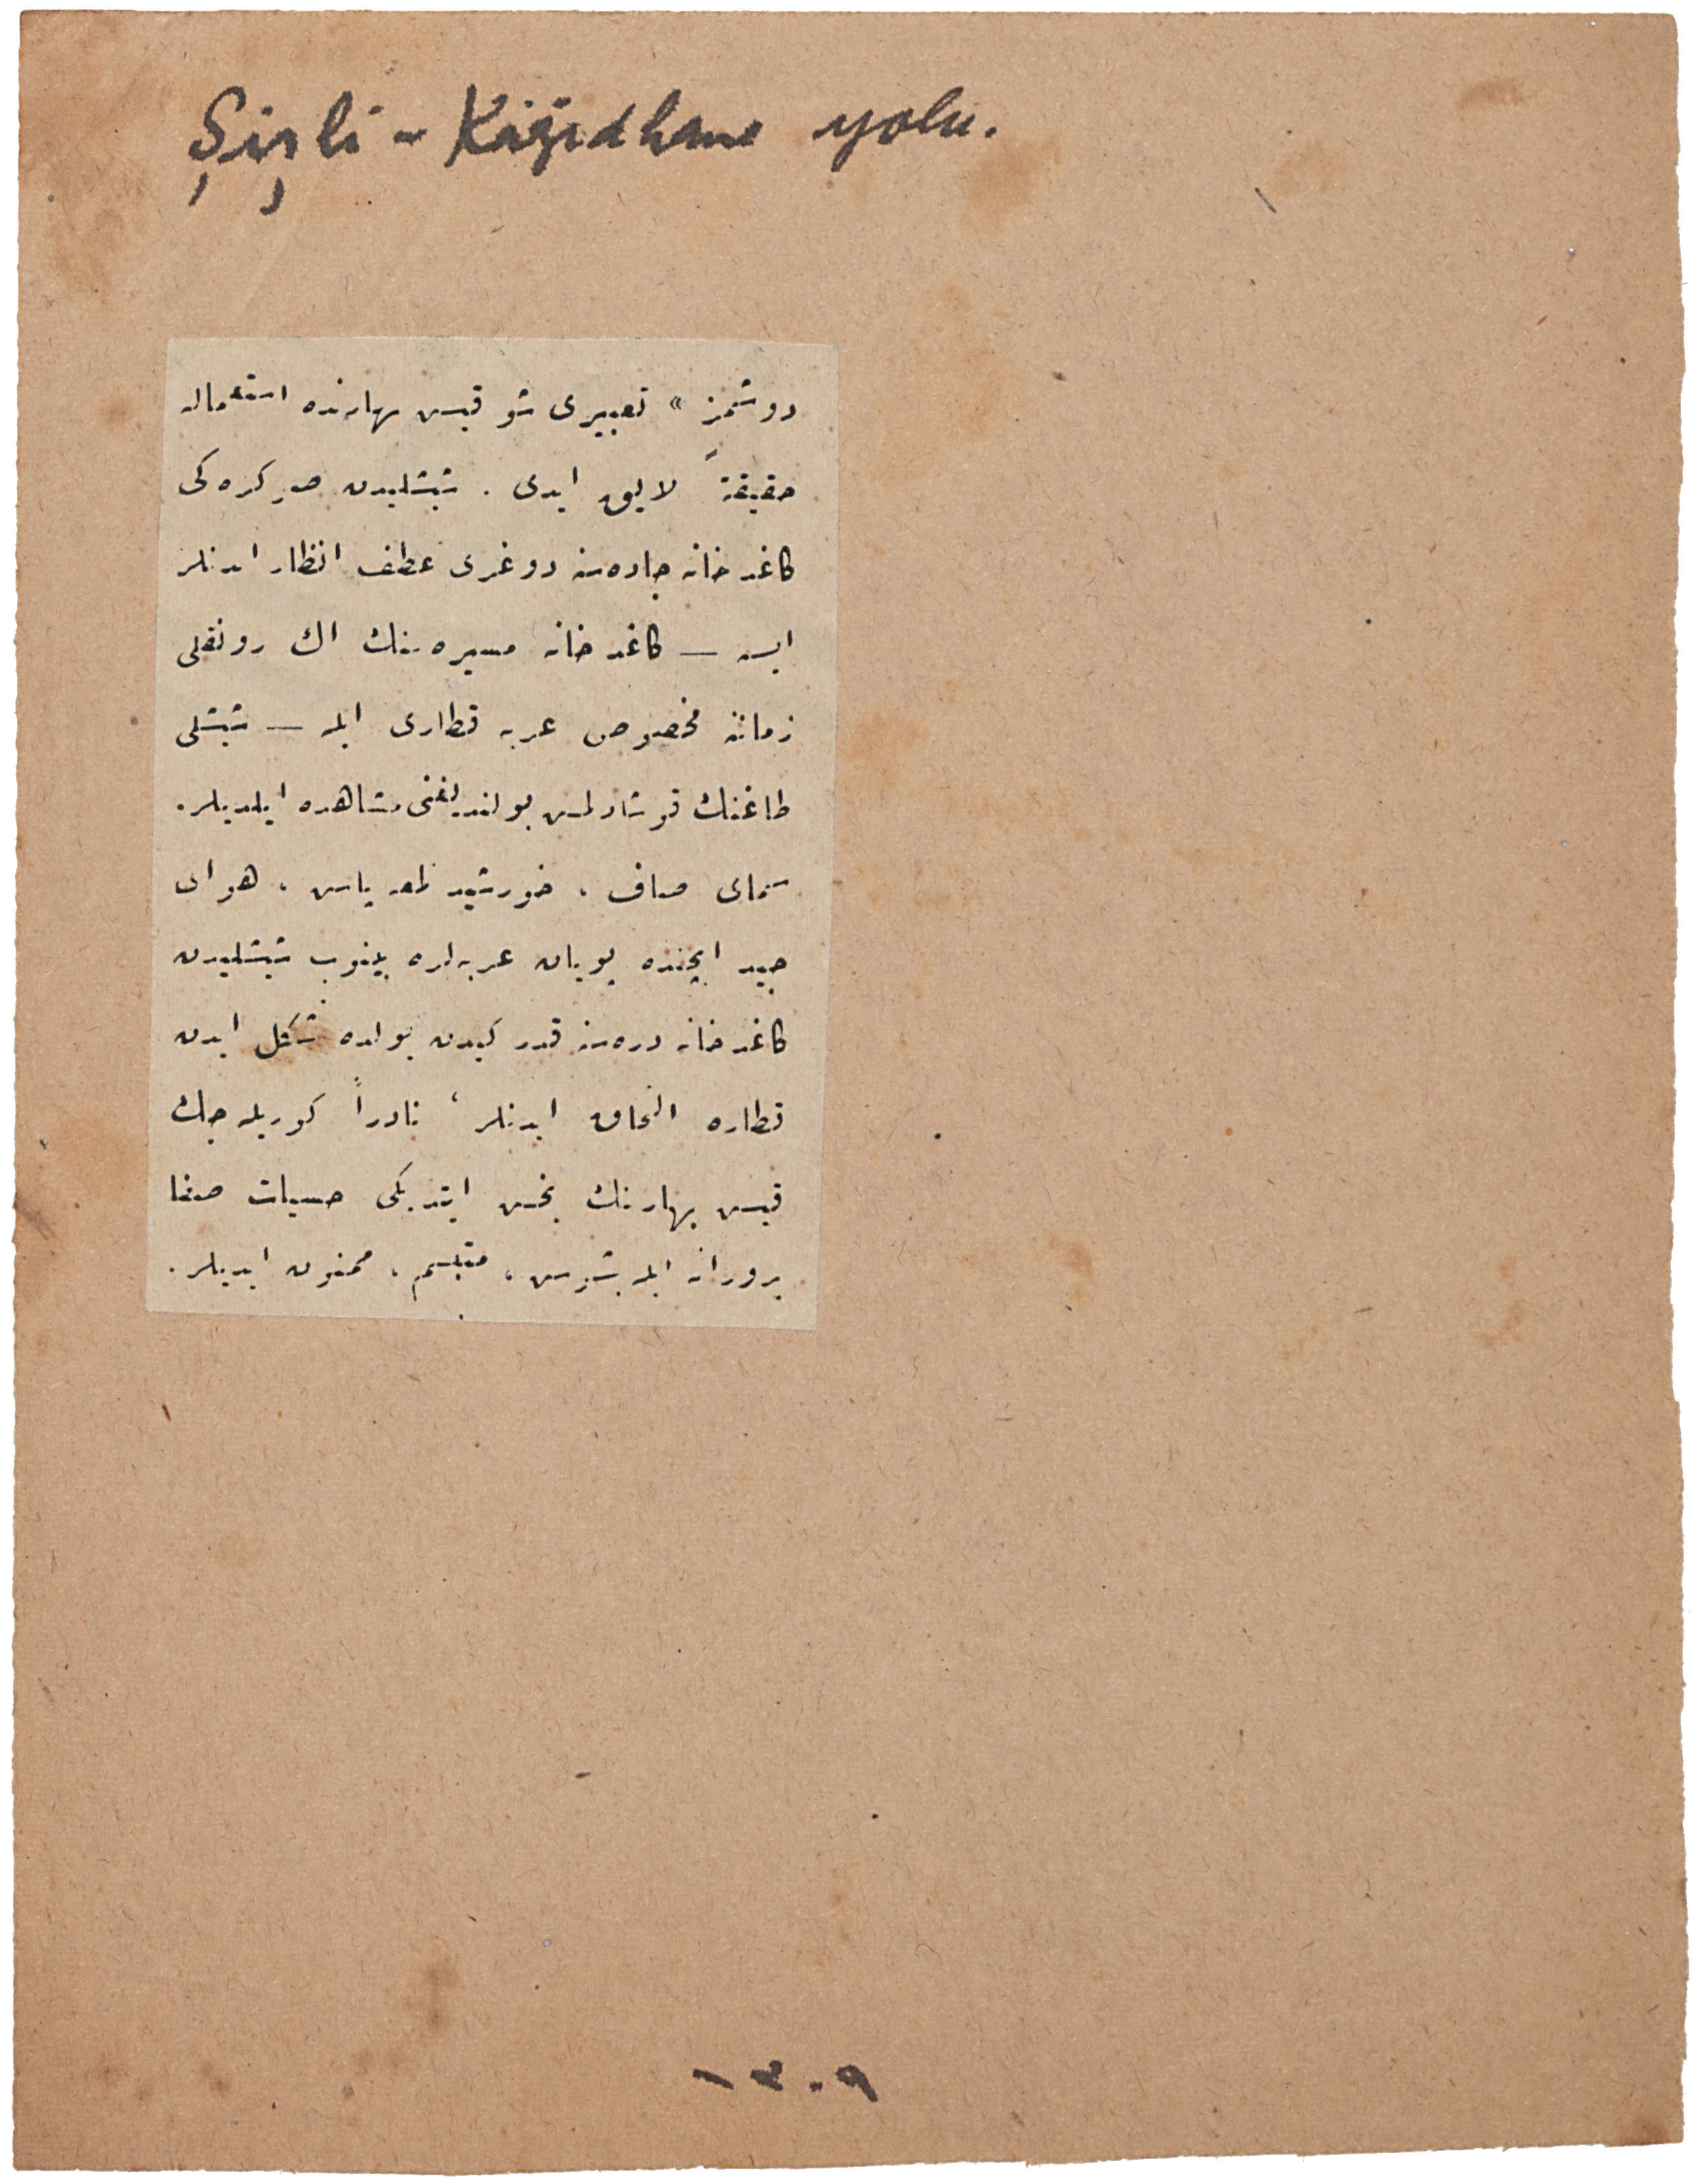 Şişli - Kâğıdhane yolu.
دوشمز » تعبیری شو قیش بهارنده استعماله
حقیقةً لایق ایدی . شیشلیدن صوکره کی
کاغدخانه جاده‌سنه دوغری عطف انظار ایدنلر
ایسه — کاغدخانه مسیره‌سنك اك رونقلی
زماننه مخصوص عربه قطاری ایله — شیشلی
طاغنك قوشادلمش بولندیغنی مشاهده ایلدیلر.
سمای صاف ، خورشید لمعه پاش ، هوای
جید ایچنده پویان عربه‌لره بینوب شیشلیدن
کاغدخانه دره‌سنه قدر کیدن یولده تشکل ایدن
قطاره التحاق ایدنلر ، نادراً کوریله‌جك
قیش بهارینك بخش ایتدیکی حسیات صفا
پرورانه ایله بشوش ، متبسم ، ممنون ایدیلر .
١٣٠٩